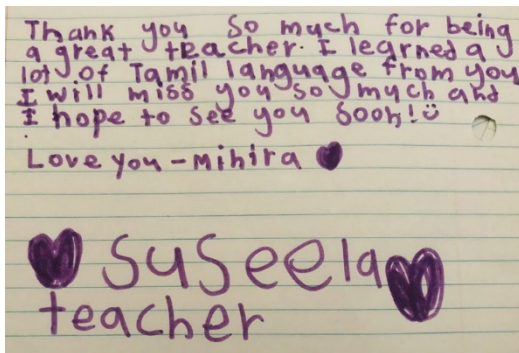 Thank you so much for being
a great teacher. I learned a
lot of Tamil language from you
I will miss you so much and
I hope to see you soon!
Love you - mihira
suseela
teacher